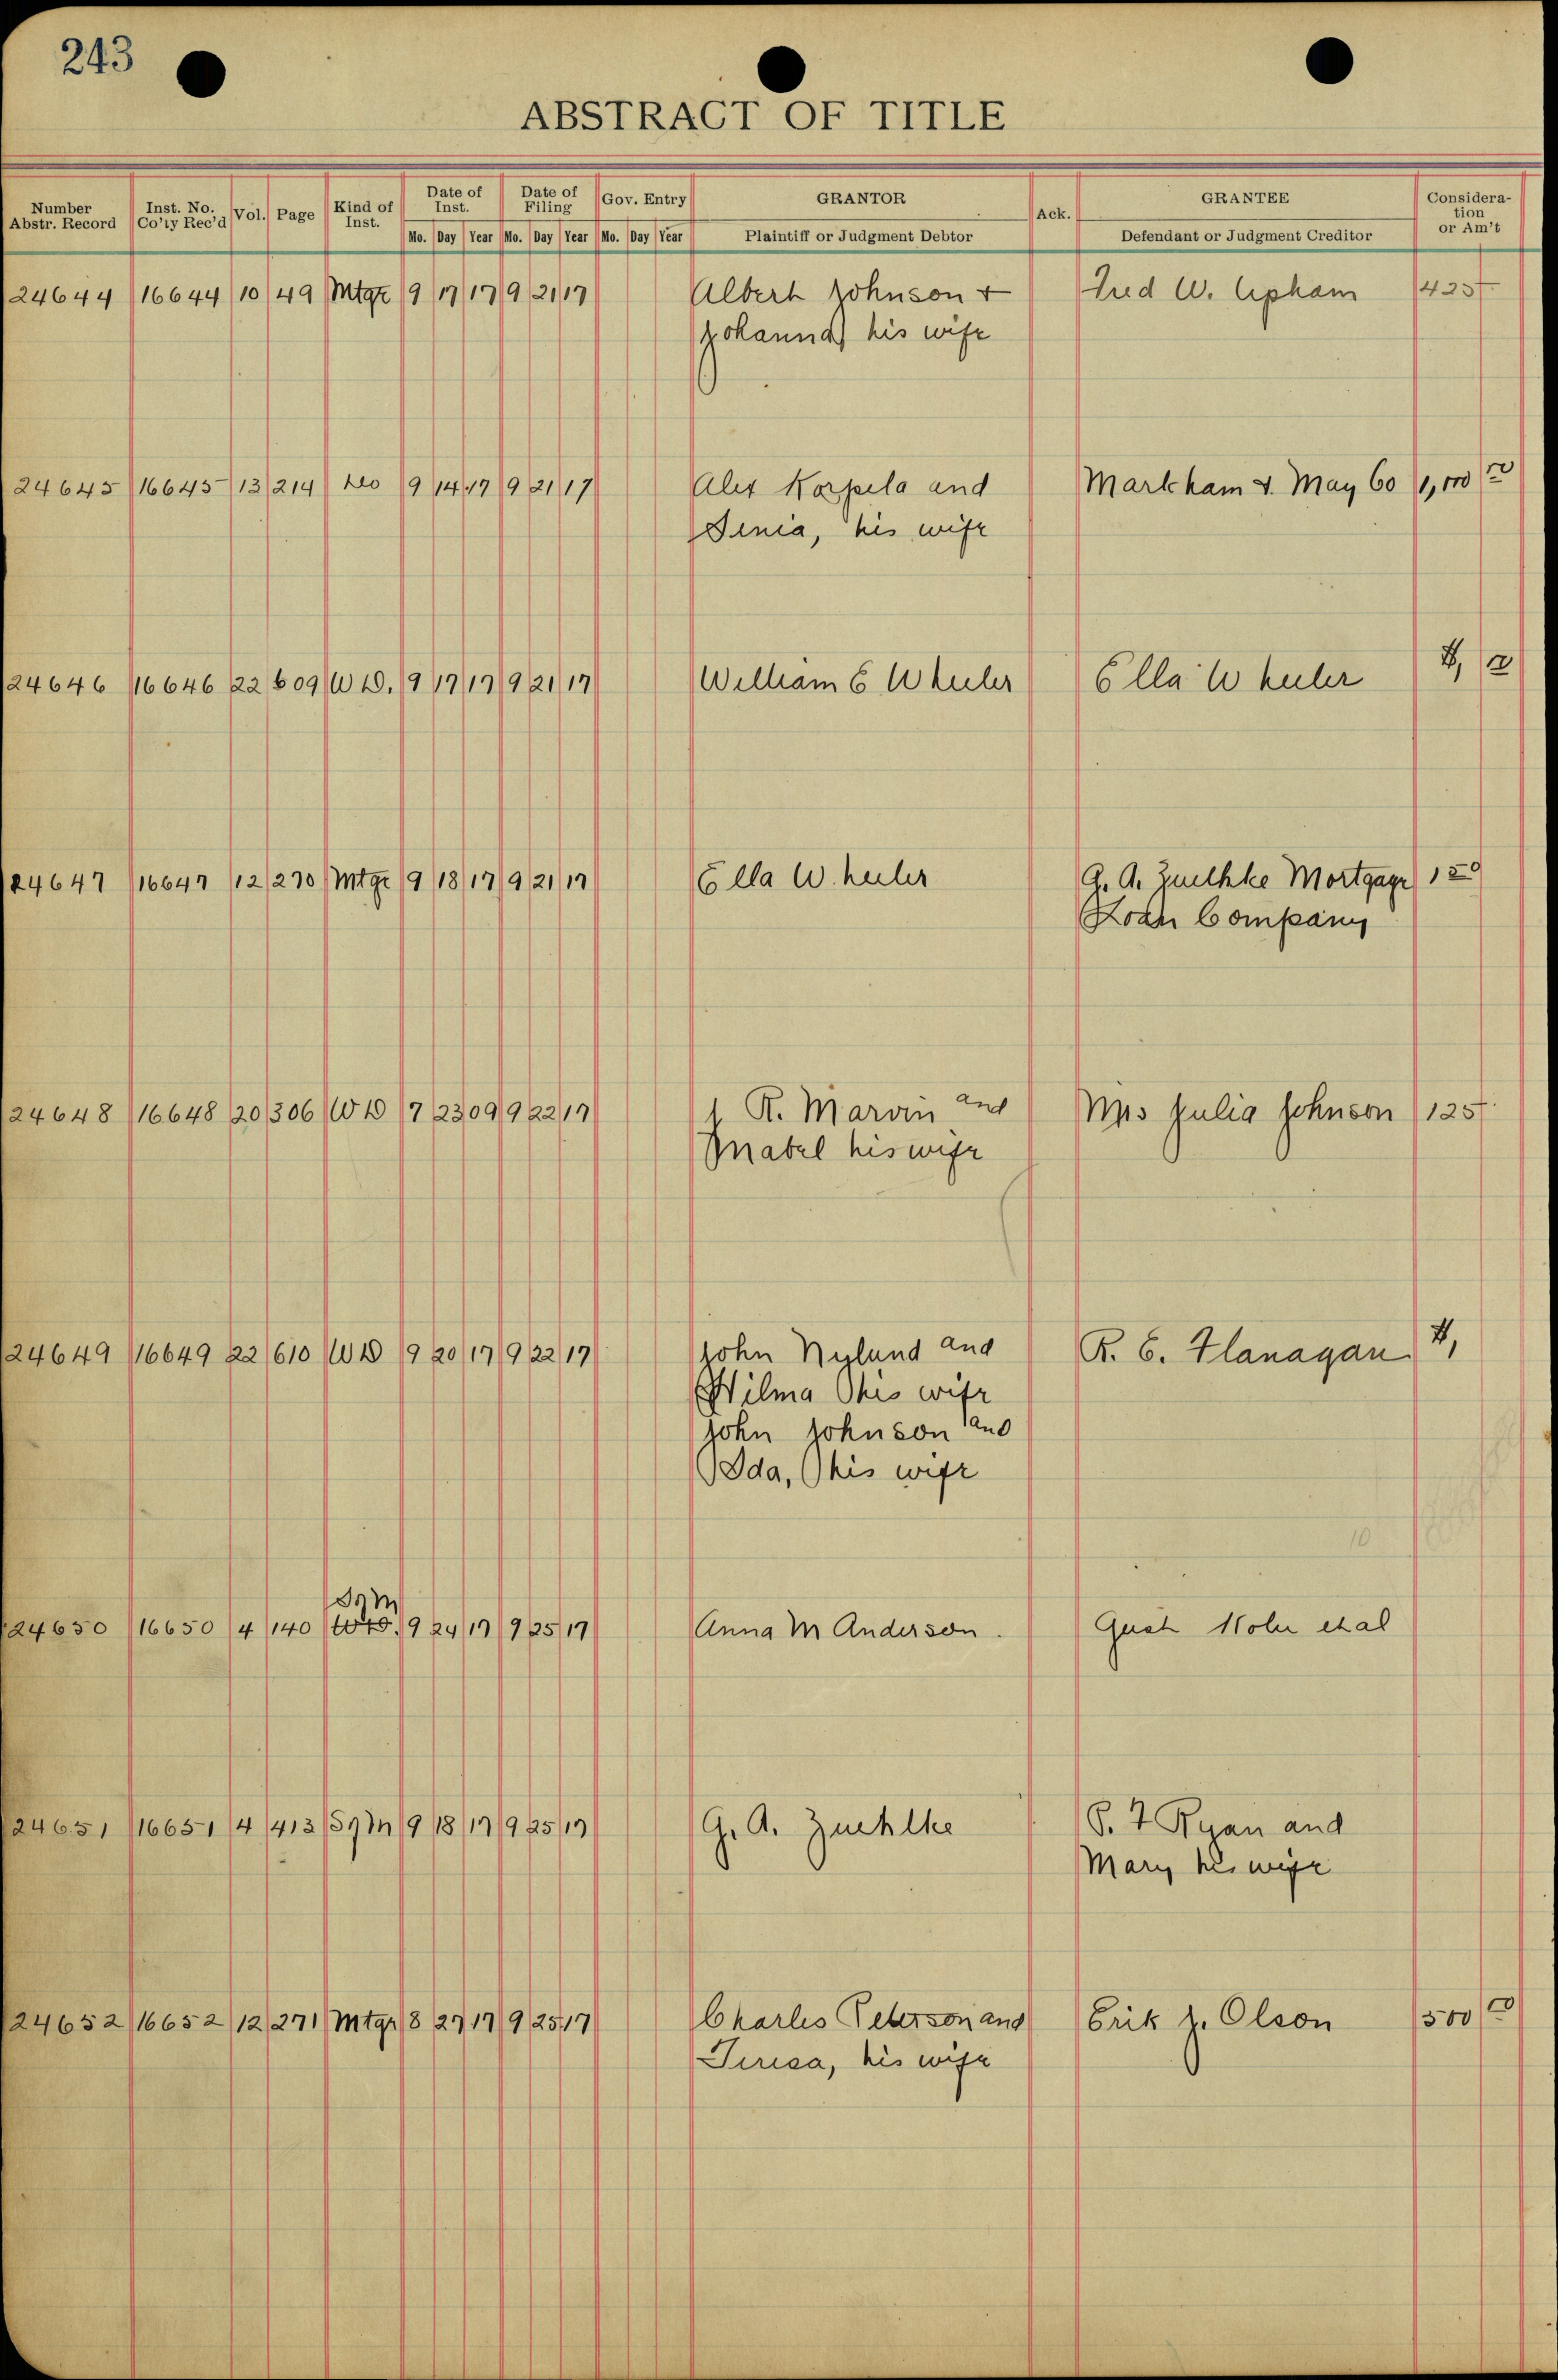 243
ABSTRACT OF TITLE
Number Abstr. Record | Inst. No. Co'ty Rec'd | Vol. | Page | Kind of Inst. | Date of Inst. | Date of Filing | Gov. Entry | GRANTOR | Ack. | GRANTEE | Consideration or Am't
Mo. Day Year Mo. Day Year Mo. Day Year | Plaintiff or Judgment Debtor | Defendant or Judgment Creditor
24644 16644 10 49 Mtge 9 17 17 9 21 17 Albert Johnson + Fred W. Upham 425
Johanna his wife
24645 16645 13 214 do 9 14 17 9 21 17 Alex Korpela and Markham & May Co 1,000
Senia, his wife
24646 16646 22 609 WD. 9 17 17 9 21 17 William E Wheeler Ella Wheeler 1,
24647 16647 12 270 Mtge 9 18 17 9 21 17 Ella Wheeler G. A. Zuelhke Mortgage 150
Loan Company
24648 16648 20 306 WD 7 23 09 9 22 17 J R. Marvin and Mrs Julia Johnson 125
Mabel his wife
24649 16649 22 610 WD 9 20 17 9 22 17 John Nylund and R. C. Flanagan 1,
Wilma his wife
John Johnson and
Ida, his wife
10
SgM
24650 16650 4 140 WD. 9 24 17 9 25 17 Anna M Anderson. Gust et al
24651 16651 4 413 SgM 9 18 17 9 25 17 G. A. Zuehlke P. F Ryan and
Mary his wife
24652 16652 12 271 Mtge 8 27 17 9 25 17 Charles Peterson and Erik J. Olson 500
Teresa, his wife